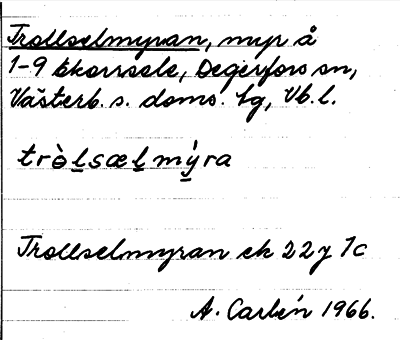 Trollselmyran, myr å
1-9 Ekorrsele, Degerfors sn,
Västerb. s. doms. tg, Vb. l.
trò̱l̲sæl̲mý̲ra
Trollselmyran ek 22y 7c
A. Carlén 1966.